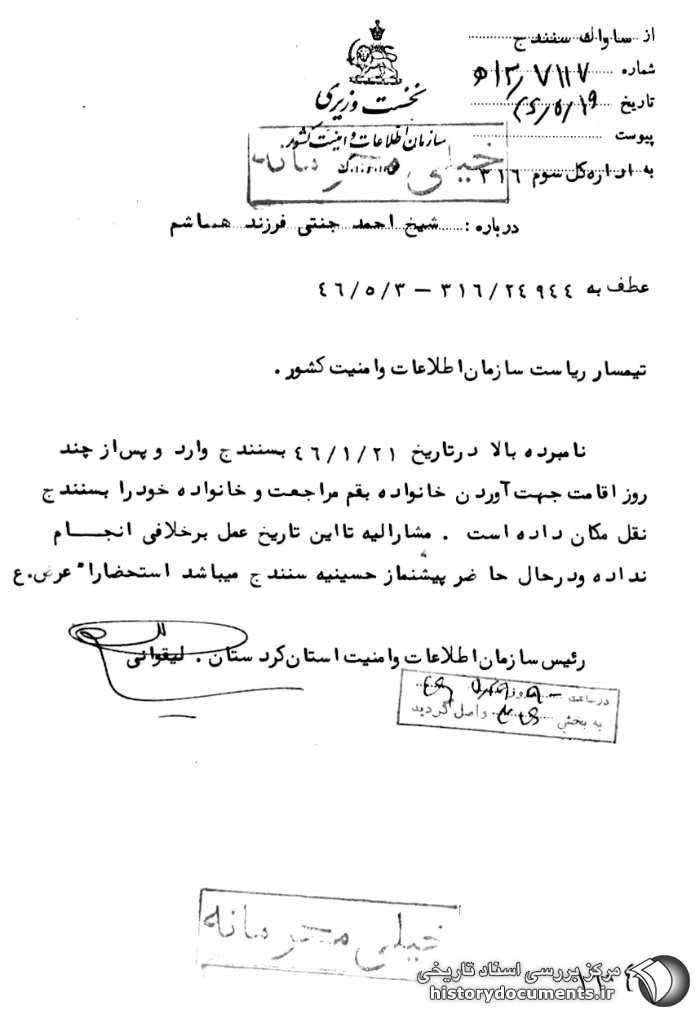 از ساواك سنندج
شماره ۷۱۱۷/۵۱۳
تاریخ ۴۶/۵/۱۹
پیوست
به اداره‌کل سوم ۳۱۶
نخست وزیری
سازمان اطلاعات و امنیت کشور
خیلی محرمانه
درباره : شیخ احمد جنتی فرزند هماشم
عطف به ۳۱۶/۲۴۹۴۴ – ۴۶/۵/۳
تیمسار ریاست سازمان اطلاعات وامنیت کشور .
نامبرده بالا درتاریخ ۴۶/۱/۲۱ بسنندج وارد و پس‌از چند
روز اقامت جهت‌آوردن خانواده بقم مراجعت و خانواده خودرا بسنندج
نقل مکان داده است . مشارالیه تااین تاریخ عمل برخلافی انجـــام
نداده ودرحال حا ضر پیشنماز حسینیه سنندج میباشد استحضارا" عرض.ع
رئیس سازمان اطلاعات وامنیت استان کردستان . لیقوانی
در ساعت روز
به بخش واصل گردید
خیلی محرمانه
مرکز بررسی اسناد تاریخی
historydocuments.ir